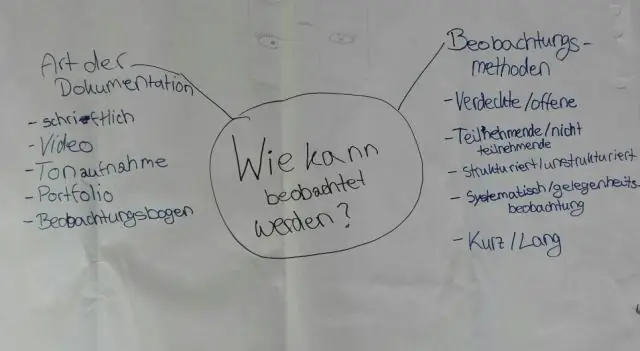 Art der
Dokumentation
- schriftlich
- Video
- Tonaufnahme
- Portfolio
- Beobachtungsbogen
Wie kann
beobachtet
werden?
Beobachtungs-
methoden
- Verdeckte/offene
- Teilnehmende/nicht
teilnehmende
- strukturiert/unstrukturiert
- Systematisch/gelegenheits
beobachtung
- Kurz/Lang